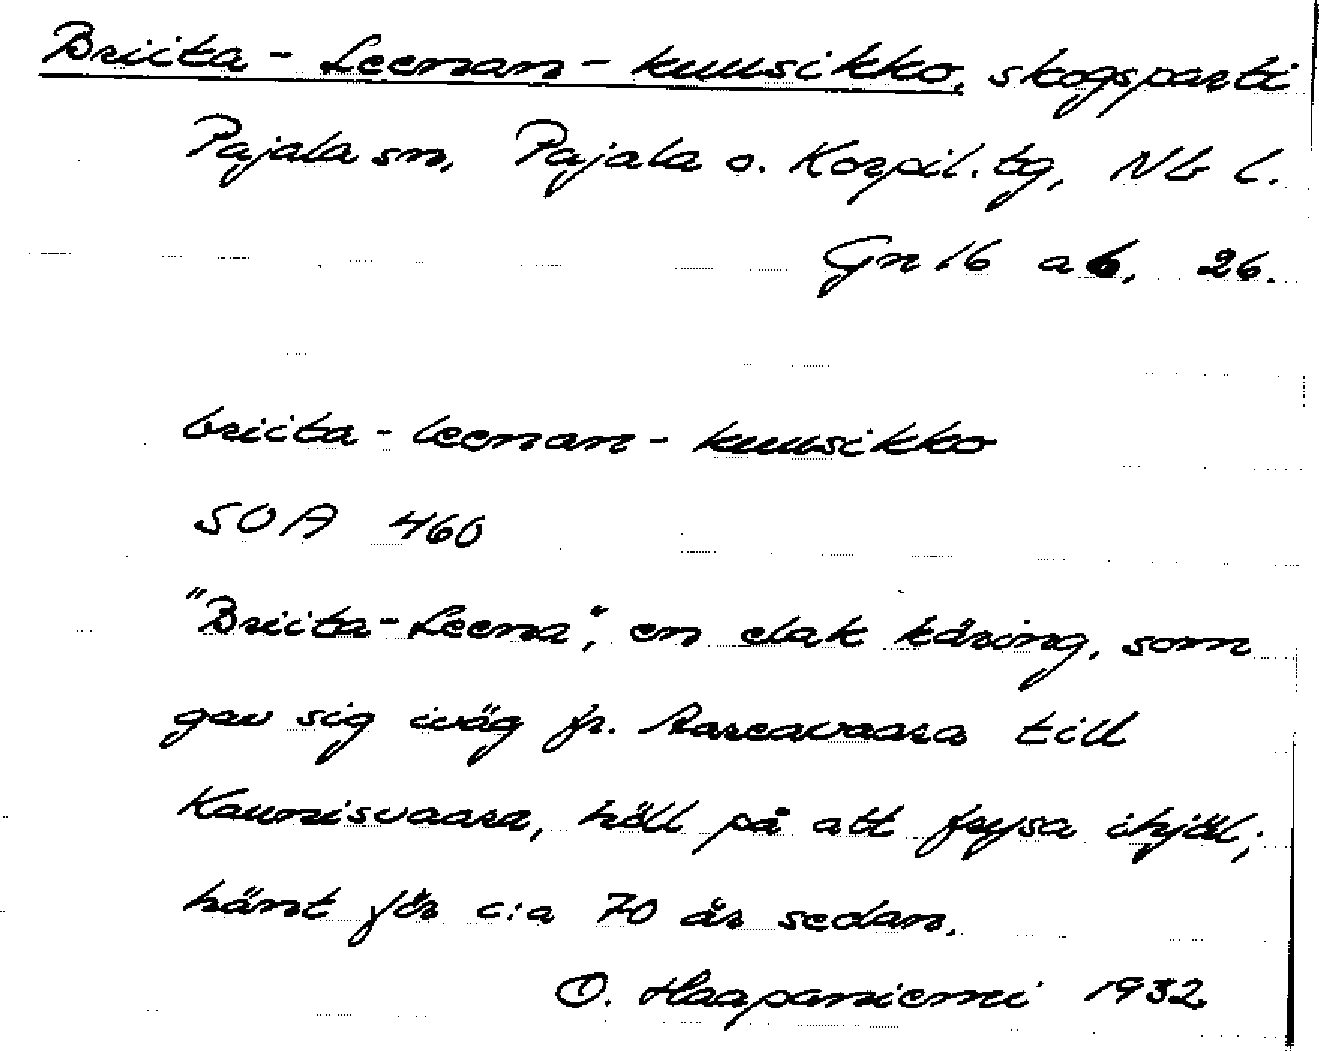 Briita-Leenan-kuusikko, skogsparti
Pajala sn, Pajala o. Korpil. tg, Nb l.
Gn 16 ab, 26.
briita-leenan-kuusikko
SOA 460
"Briita-Leena", en elak käring, som
gav sig iväg fr. Aareavaara till
Kaunisvaara, höll på att frysa ihjäl;
hänt för c:a 70 år sedan.
O. Haapaniemi 1932